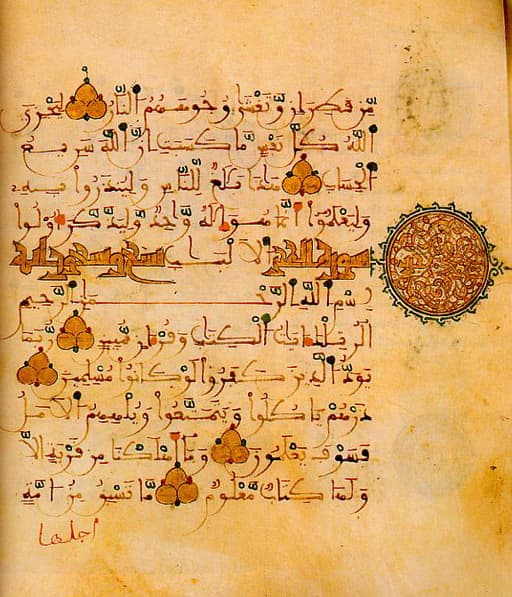 مِّن قَطِرَانٍ وَّتَغْشَىٰ وُجُوهَهُمُ النَّارُ لِيَجْزِيَ
اللَّهُ كُلَّ نَفْسٍ مَّا كَسَبَتِ انَّ اللَّهَ سَرِيعُ
الْحِسَابِ هَٰذَا بَلَٰغٌ لِّلنَّاسِ وَلِيُنذَرُوا بِهِ
وَلِيَعْلَمُوا أَنَّمَا هُوَ إِلَٰهٌ وَٰحِدٌ وَلِيَذَّكَّرَ أُولُوا
سورة الحجر الالبٰب تسع وتسعون اية
بسم الله الرحمٰن الرحيم
الر تلك ايٰت الكتٰب وقرءان مبين ربما
يودّ الذين كفروا لو كانوا مسلمين
ذرهم ياكلوا ويتمتعوا ويلههم الامل
فسوف يعلمون وما أهلكنا من قرية الّا
ولها كتاب معلوم ما تسبق من امة
اجلها